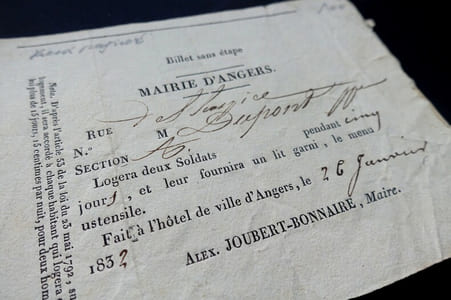 Billet sans étape
MAIRIE D'ANGERS.
RUE
N.º M Dupont
SECTION A.
Logera deux Soldats pendant cinq
jours, et leur fournira un lit garni, le menu
ustensile.
Fait à l'hôtel de ville d'Angers, le 26 Janvier
1832
ALEX. JOUBERT-BONNAIRE, Maire.
Nota. D'après l'article 53 de la loi du 23 mai 1792, sur
logement, il sera accordé à chaque habitant qui logera
de plus 15 jours, 15 centimes par nuit, pour deux hom